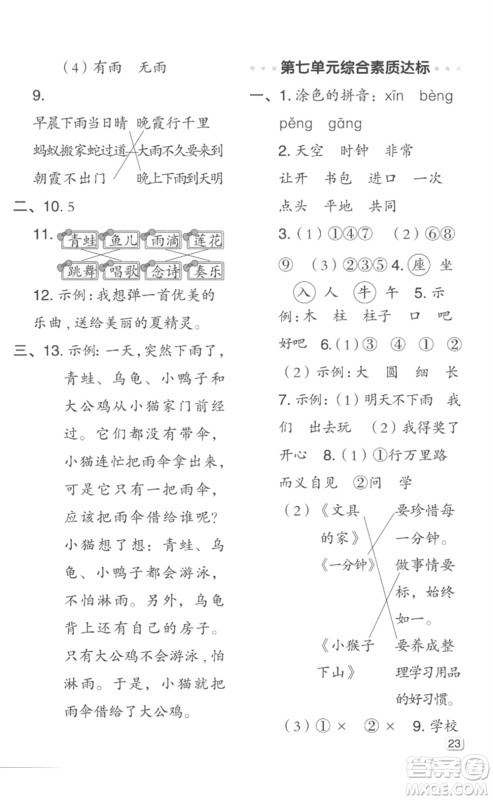 （4）有雨　无雨
9.
早晨下雨当日晴　晚霞行千里
蚂蚁搬家蛇过道　大雨不久要来到
朝霞不出门　晚上下雨到天明
二、10. 5
11. 青蛙　鱼儿　雨滴　莲花
跳舞　唱歌　念诗　奏乐
12. 示例：我想弹一首优美的
乐曲，送给美丽的夏精灵。
三、13. 示例：一天，突然下雨了，
青蛙、乌龟、小鸭子和
大公鸡从小猫家门前经
过。它们都没有带伞，
小猫连忙把雨伞拿出
来。可是只有一把雨伞，
应该把雨伞借给谁呢？
小猫想了想：青蛙、乌
龟、小鸭子都会游泳，
不怕淋雨。另外，乌龟
背上还有自己的房子。
只有大公鸡不会游泳，怕
淋雨。于是，小猫把
雨伞借给了大公鸡。
第七单元综合素质达标
一、1. 涂色的拼音：xīn　bèng
pěng　gāng
2. 天空　时钟　非常
让开　书包　进口　一次
点头　平地　共同
3.（1）①④⑦　（2）⑥⑧
⑨　（3）②③⑤　4. 座　坐
入　人　牛　午　5. 示
例：木　柱　柱子　口　吧
好吧　6.（1）①③④②
（2）示例：大　圆　细　长
7. 示例：（1）明天不下雨　我
们　出去玩　（2）我得奖了
开心　8.（1）①行万里路
而义自见　②问　学
（2）《文具的家》　要珍惜每一分钟。
《一分钟》　做事情要有目标，始终如一。
《小猴子下山》　要养成整理学习用品的好习惯。
（3）①×　②×　9. 学校
23
答案圈
MXQE.COM